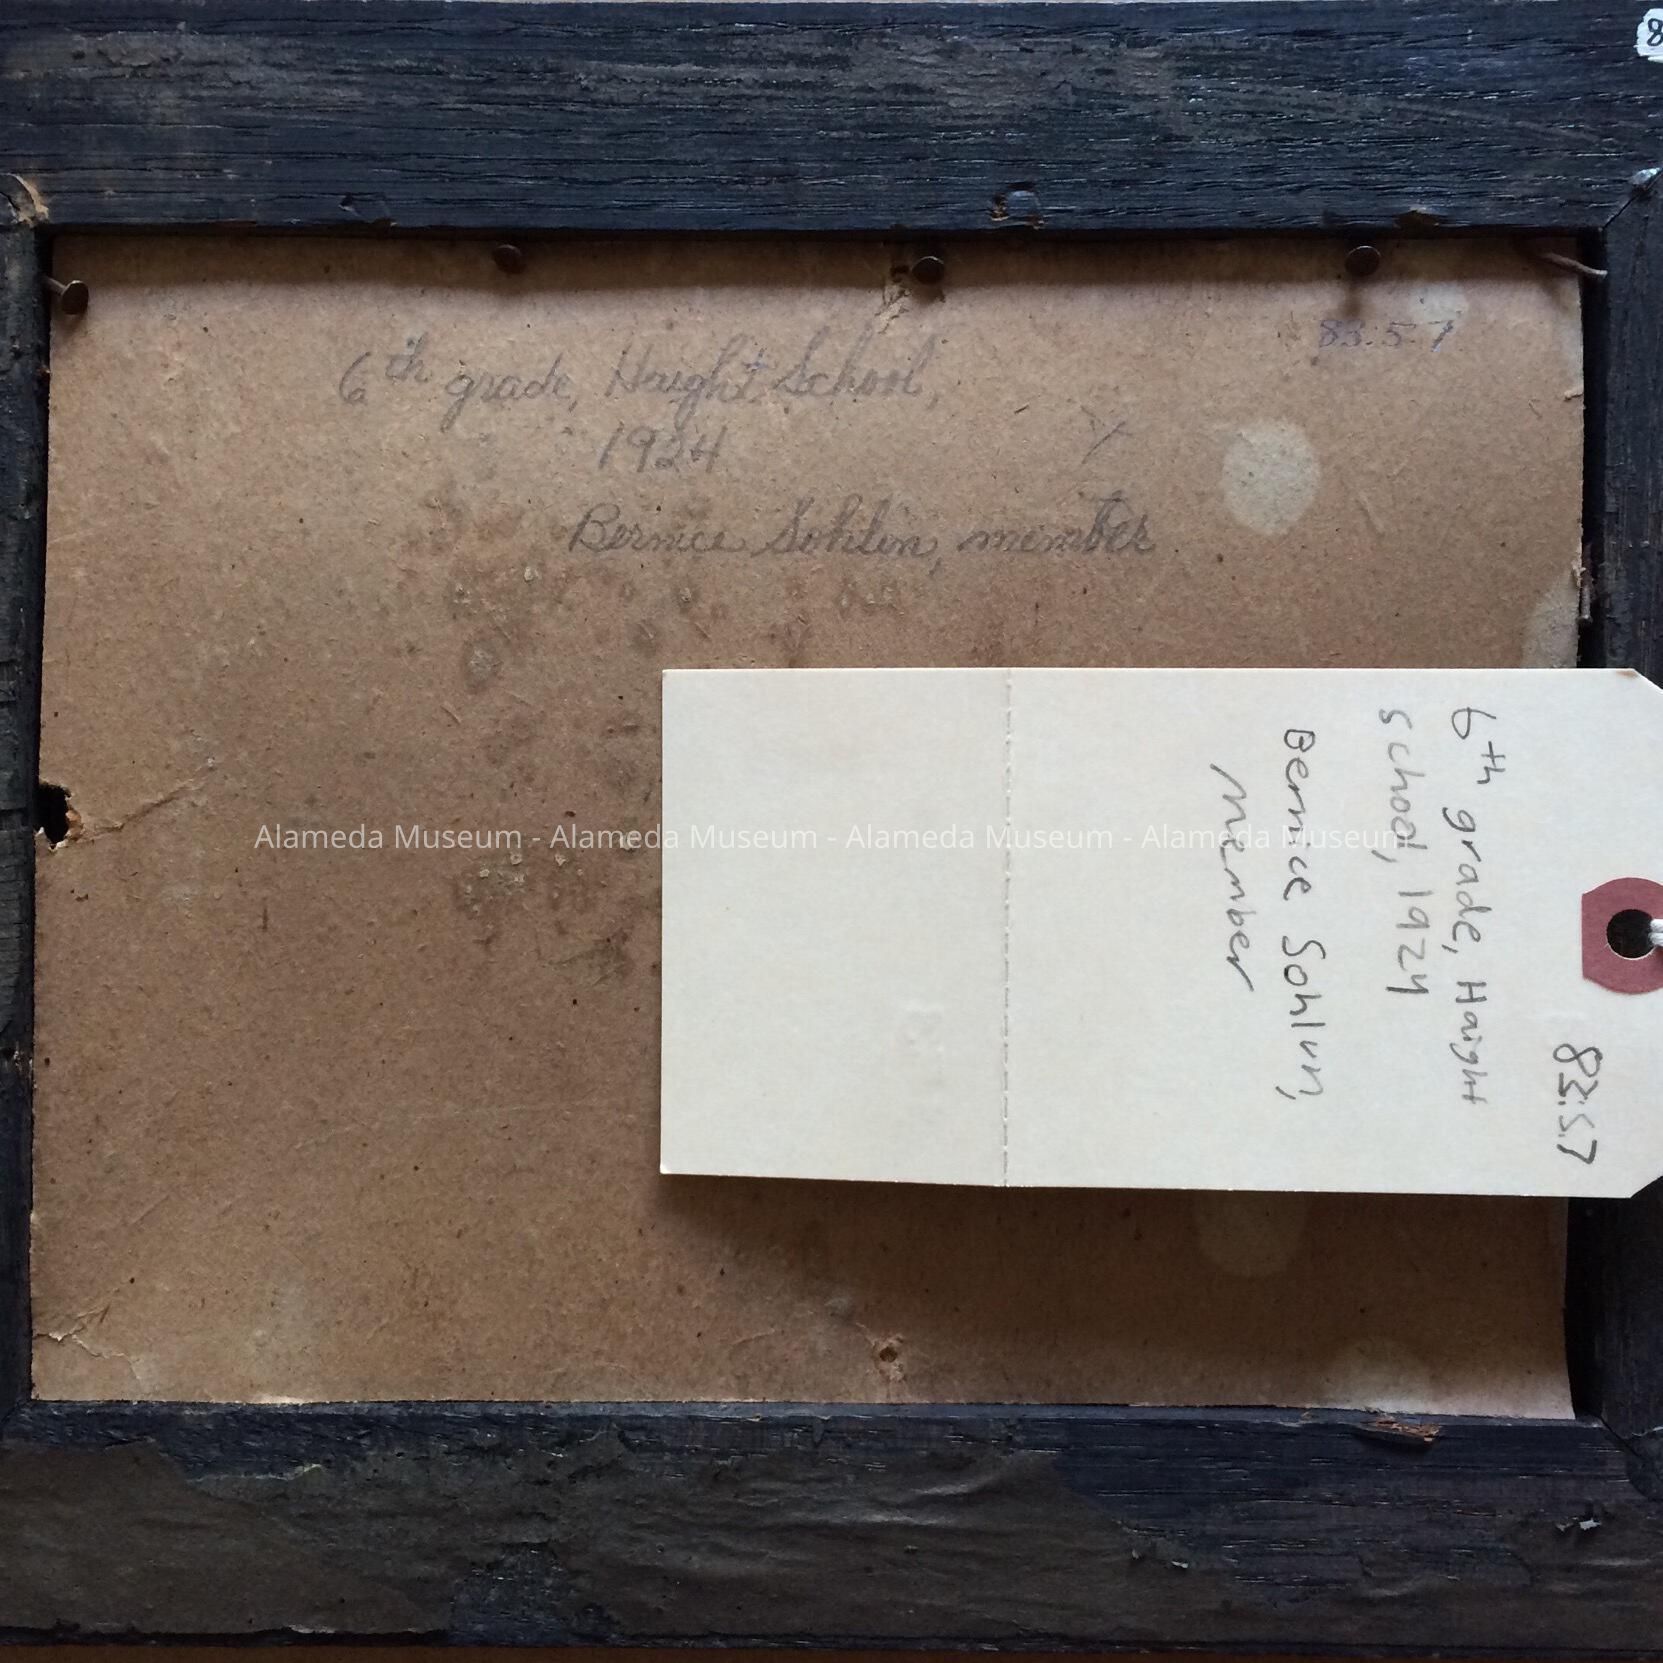 8
83.5.7
6th grade, Haight School,
1924
Bernice Sohlin, member
83.5.7
6th grade, Haight
school, 1924
Bernice Sohlun,
member
Alameda Museum - Alameda Museum - Alameda Museum - Alameda Museum